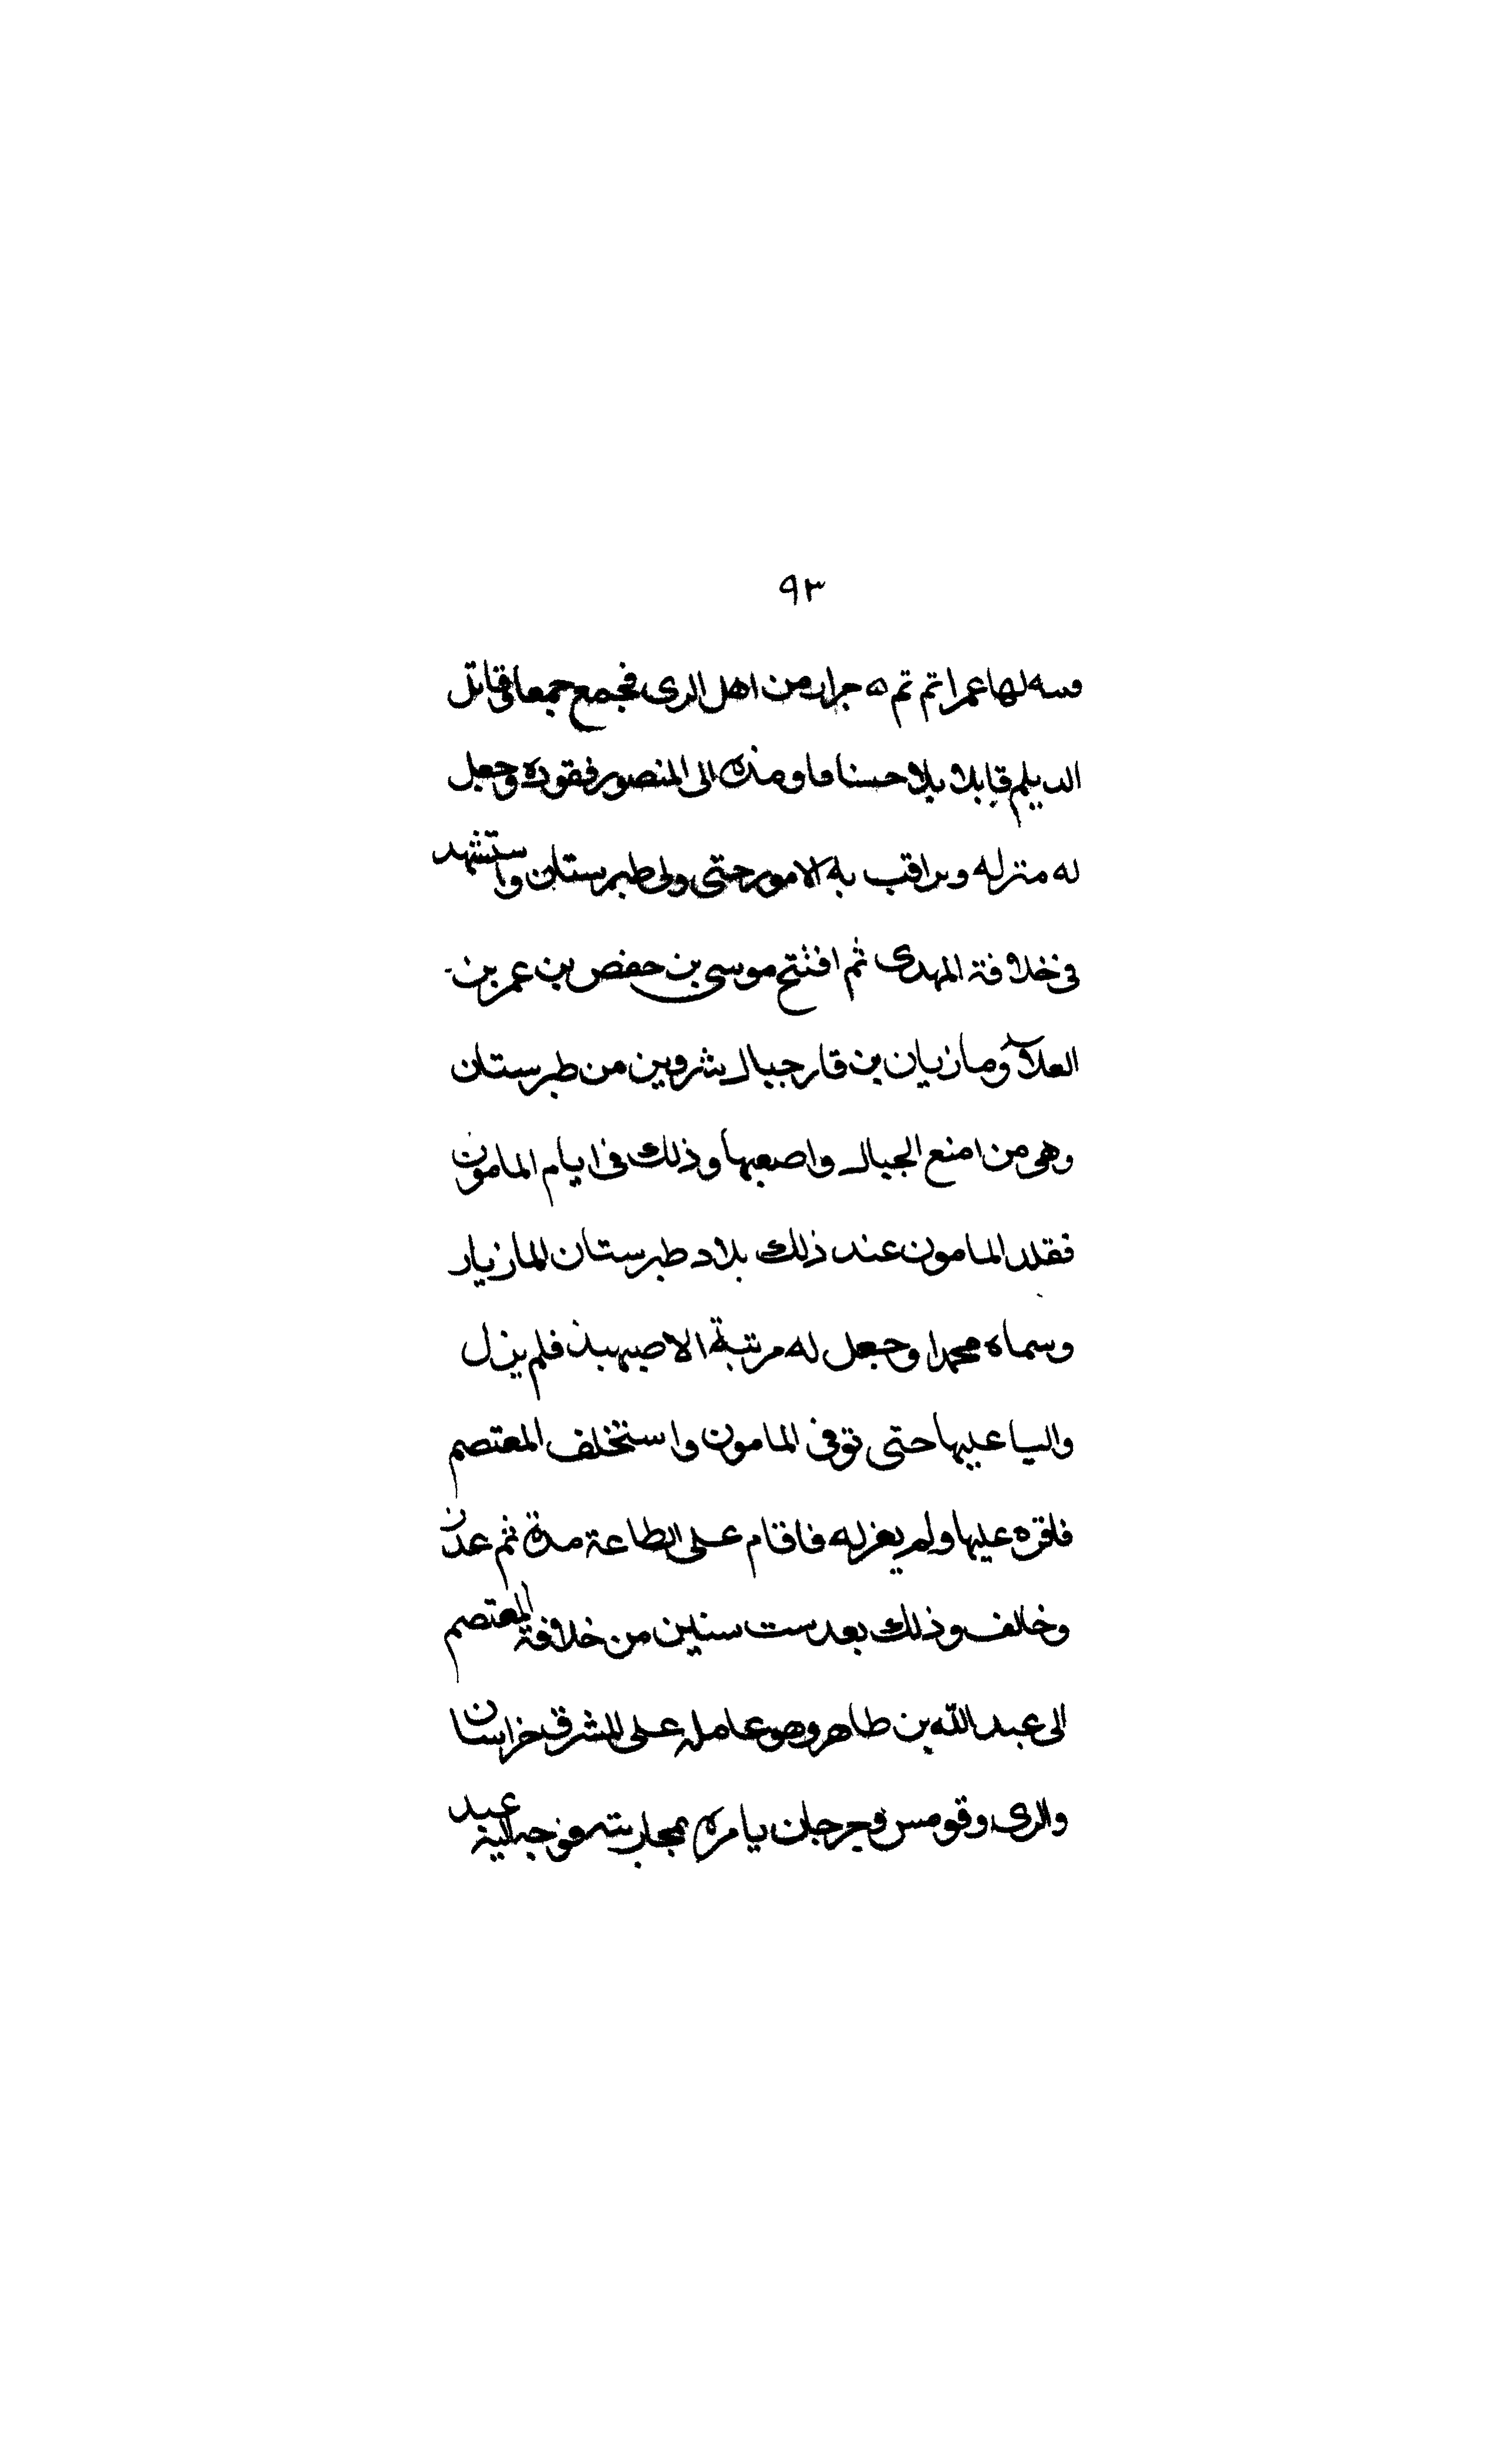 ٩٣
وسه لها عمرا تم تم ه جرار من اهل الرى فجمع جمعا وقاتل
الديلم قابلا بلا حسنا فاوفده الى المنصور فقوده وجعل
له منزله وبراقب به الامور حتى ولى طبرستان واستشهد
فى خلافة المهدى ثم افتتح موسى بن حفص بن عمر بن
العلاء ومازيان بن قار جبال شروين من طبرستان
وهى من امنع الجبال واصعبها وذلك فى ايام المامون
فقلد المامون عند ذلك بلاد طبرستان المازيار
وسماه محمدا وجعل له مرتبة الاصبهبذ فلم يزل
واليا عليها حتى توفى المامون واستخلف المعتصم
فاقره عليها ولم يعزله فاقام على الطاعة مدة ثم عدن
وخالف وذلك بعد ست سنين من خلافة المعتصم
الى عبد الله بن طاهر وهو عامله على المشرق خراسان
والرى وقومس وجرجان يامره بمحاربته فوجه اليه عبد